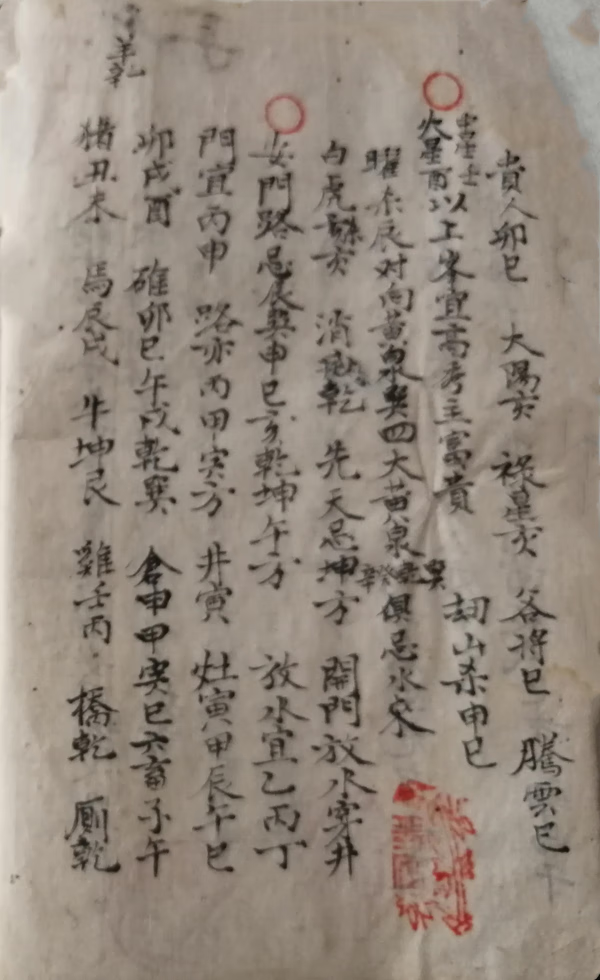 貴人卯巳 太陽亥 祿星亥 谷将巳 騰雲巳
火星酉以上峯宜高秀主富貴 刼山杀申巳
曜杀辰对向黄泉巽四大黄泉 俱忌水來
白虎 亥 消 乾 先天忌坤方 開門放水穿井
安門路忌辰巽申巳亥乾坤午方 放水宜乙丙丁
門宜丙申 路亦丙甲寅方 井寅 灶寅甲辰午巳
卯戌酉 碓卯巳午戌乾巽 倉申甲寅巳六畜子午
猪丑未 馬辰戌 牛坤艮 雞壬丙 橋乾 厠乾
羊乾